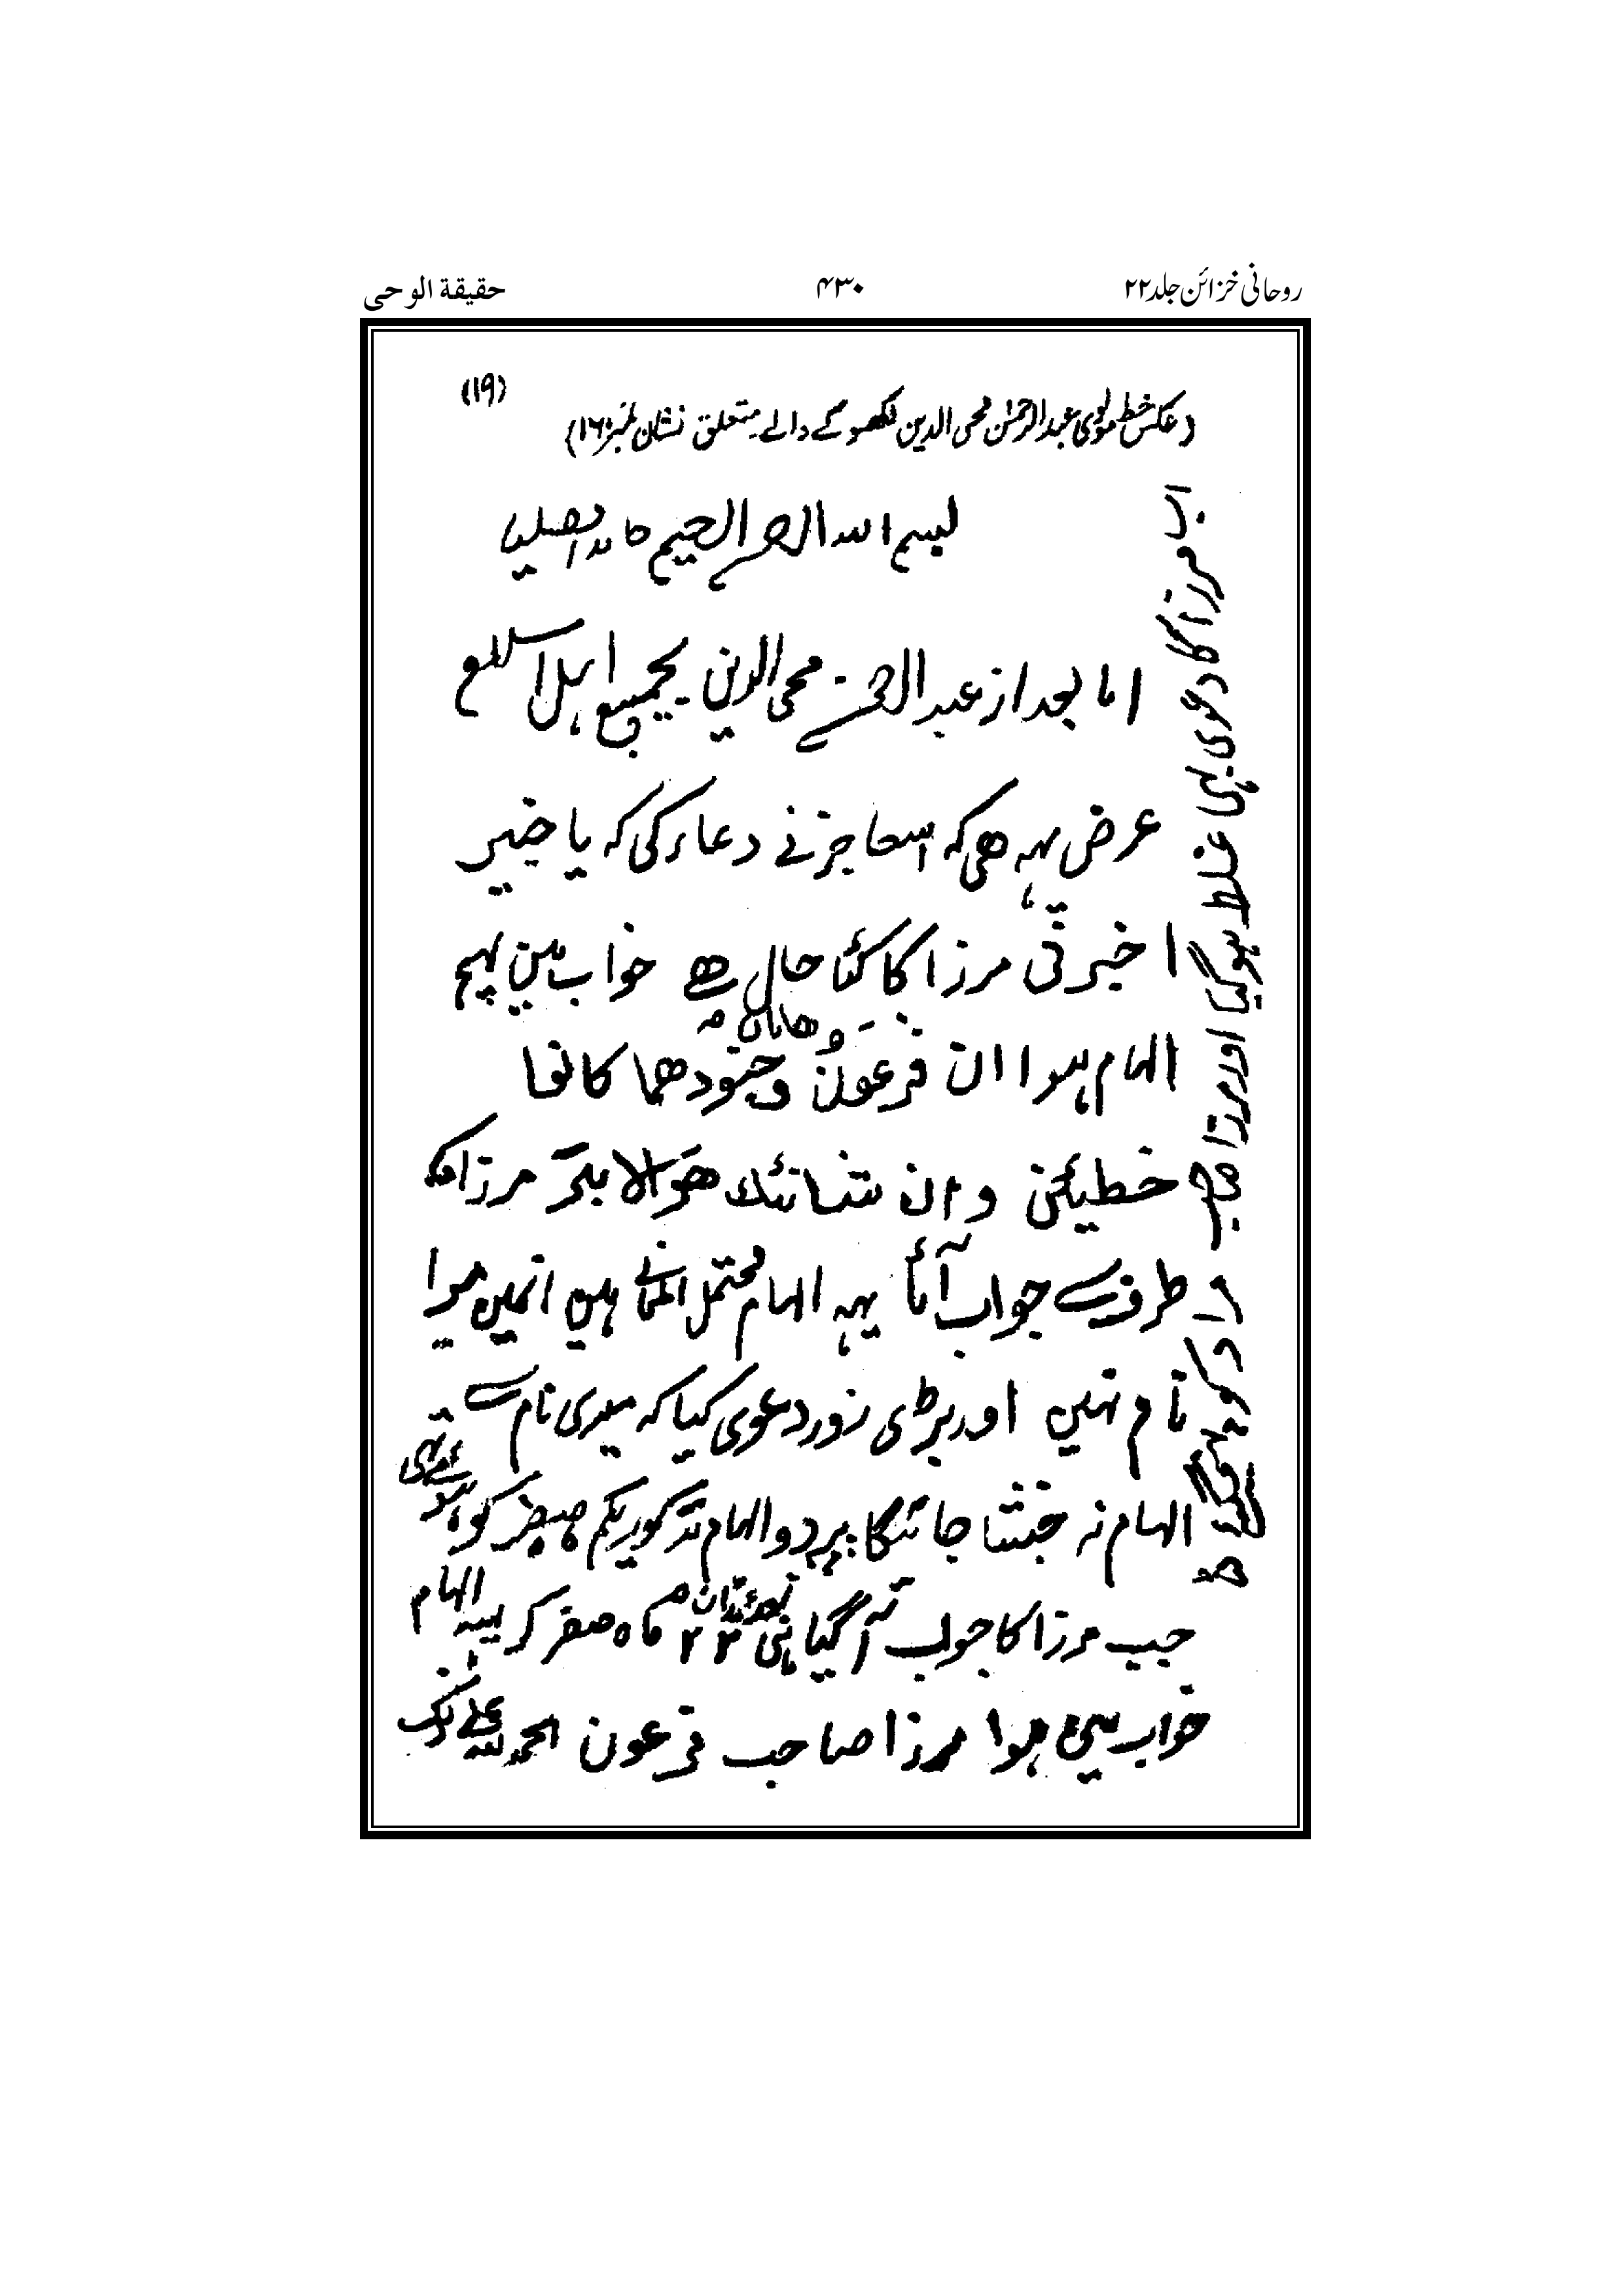 روحانی خزائن جلد ۲۲
۴۳۰
حقیقۃ الوحی
(۱۹)
(عکس خط مولوی عبدالرحمٰن محی الدین لکھو کے والے متعلق نشان نمبر ۱۶۰)
بسم اللہ الرحمن الرحیم حامدا مصلیا
اما بعد از عبد الرحمن محی الدین بجمیع اہل اسلام
عرض یہہ ھی کہ اسعاجز نے دعاء کی کہ یا خبیر
اخبرنی مرزا کا کیا حال ھے خواب مین یہہ
الہام ہوا ان فرعون وھامان وجنودھما کانوا
خطیئین وان شانئک ھو الابتر مرزا کی
طرف سے جواب آیا یہہ الہام محتمل المعانے ہین انمین میرا
نام نہین اور بڑی زور دعوی کیا کہ میری نام سے
الہام نہ بخشا جائیگا یہ دو الہام مذکور یکم صفر کو ہوئے تہی
جب مرزا کا جواب آگیا بعد ماہ صفر کر یہہ الہام
خواب مین ہوا مرزا صاحب فرعون الحمد للہ علے ذلک
اب مرزا کا دعوی بہی غلط ہوگیا اور مرزا صاحب